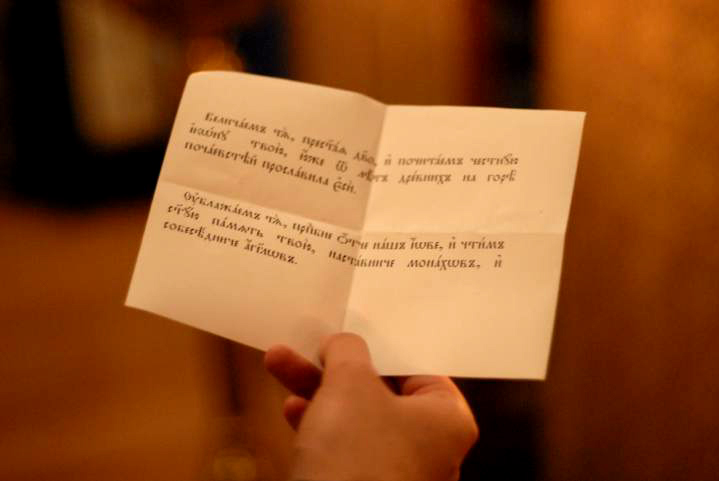 Велича́емъ тѧ̀, прест҃а́ѧ дв҃о, и҆ почита́емъ честнꙋ́ю
і҆кѡ́нꙋ твою̀, ю҆́же ѿ лѣ́тъ дре́внихъ на горѣ̀
поча́евстѣй просла́вила є҆сѝ.
Оу҆блажа́емъ тѧ̀, прпⷣбне ѻ҆́тче на́шъ і҆́ѡве, и҆ чти́мъ
ст҃ꙋ́ю па́мѧть твою̀, наста́вниче мона́хѡвъ, и҆
собесѣ́дниче а҆́гг҃лѡвъ.